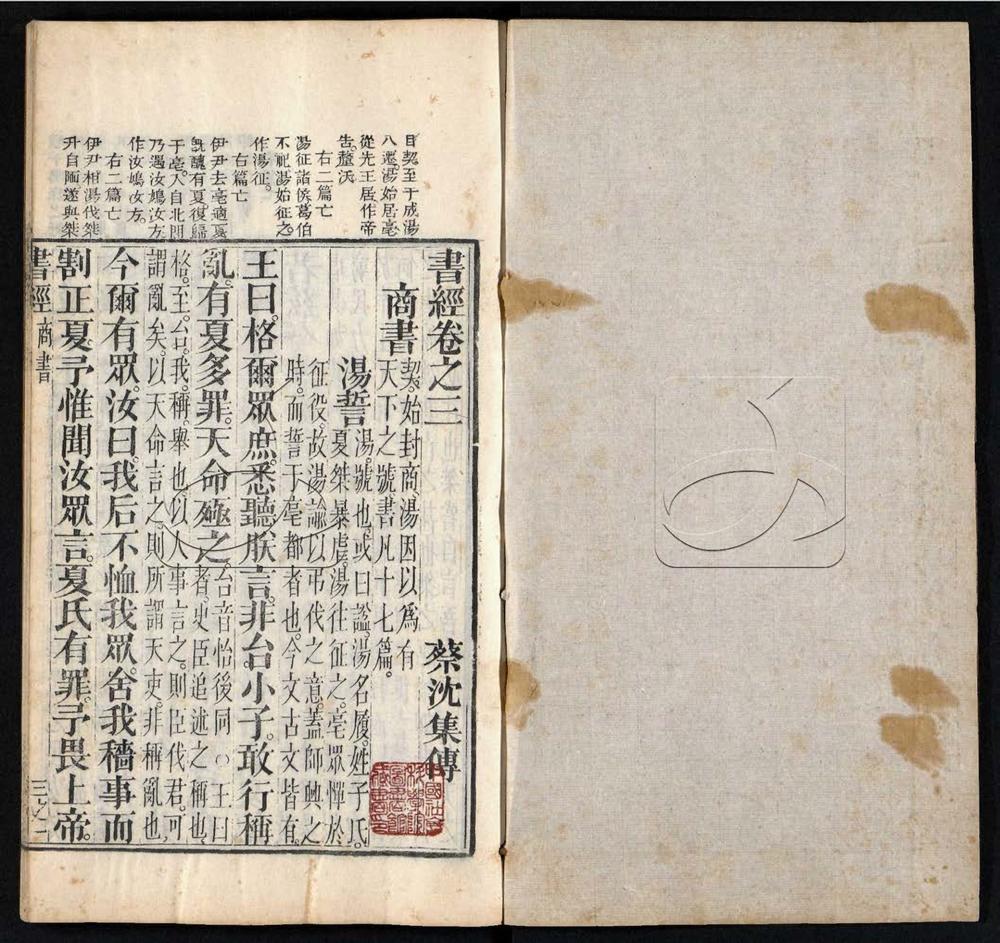 自契至于成湯
八遷。湯始居亳
從先王居作帝
告。釐沃
右二篇亡
湯征諸侯葛伯
不祀湯始征之
作湯征。
右一篇亡
伊尹去亳適夏
既醜有夏。復歸
于亳。入自北門
乃遇汝鳩汝方
作汝鳩汝方。
右二篇亡
伊尹相湯伐桀
升自陑遂與桀
書經卷之三 蔡沈集傳
商書 契。始封商、湯因以爲有
天下之號。書凡十七篇。
湯誓 湯。號也。或曰諡。湯名履。姓子氏。
夏桀暴虐。湯往征之。亳眾憚於
征役。故湯諭以弔伐之意。蓋師興之
時。而誓于亳都者也。今文古文皆有。
王曰。格爾眾庶。悉聽朕言。非台小子。敢行稱
亂。有夏多罪。天命殛之。 台音怡後同○王曰
者。史臣追述之稱也。
格。至。台。我。稱。舉也。以人事言之。則臣伐君。可
謂亂矣。以天命言之。則所謂天吏。非稱亂也。
今爾有眾。汝曰。我后不恤我眾。舍我穡事而
割正夏。予惟聞汝眾言。夏氏有罪。予畏上帝。
書經 商書